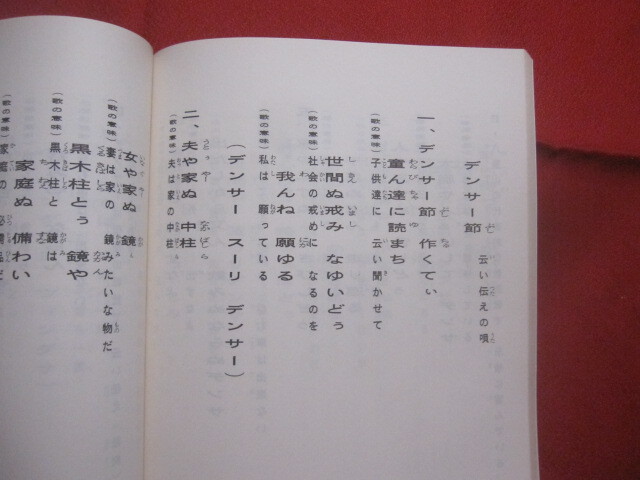 デンサー節 云い伝えの唄
一、デンサー節 作くてぃ
童ん達に読まち
(歌の意味) 子供達に 云い聞かせて
世間ぬ戒み なゆいどぅ
(歌の意味) 社会の戒めに なるのを
我んね 願ゆる
(歌の意味) 私は 願っている
(デンサー スーリ デンサー)
二、夫や家ぬ 中柱
(歌の意味) 夫は家の中柱
女や家ぬ 鏡
(歌の意味) 妻は家の 鏡みたいな物だ
黒木柱とぅ 鏡や
(歌の意味) 黒木柱と 鏡は
家庭ぬ 備わい
(歌の意味) 家庭の